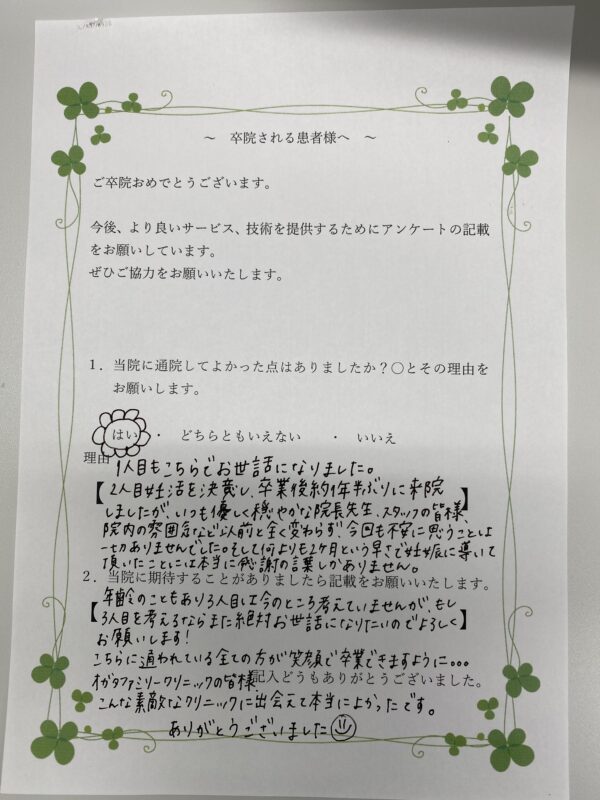 ～　卒院される患者様へ　～
ご卒院おめでとうございます。
今後、より良いサービス、技術を提供するためにアンケートの記載
をお願いしています。
ぜひご協力をお願いいたします。
１．当院に通院してよかった点はありましたか？○とその理由を
お願いします。
はい　・　どちらともいえない　・　いいえ
理由
1人目もこちらでお世話になりました。
【2人目妊活を決意し、卒業後約1年半ぶりに来院
しましたが、いつも優しく穏やかな院長先生、スタッフの皆様、
院内の雰囲気など以前と全く変わらず、今回も不安に思うことは
一切ありませんでした。そして何よりも2ヶ月という早さで妊娠に導いて
頂いたことには本当に感謝の言葉しかありません。
２．当院に期待することがありましたら記載をお願いいたします。
年齢のこともあり3人目は今のところ考えていませんが、もし
【3人目を考えるならまた絶対お世話になりたいのでよろしく】
お願いします！
こちらに通われている全ての方が笑顔で卒業できますように…
オガタファミリークリニックの皆様
記入どうもありがとうございました。
こんな素敵なクリニックに出会えて本当によかったです。
ありがとうございました